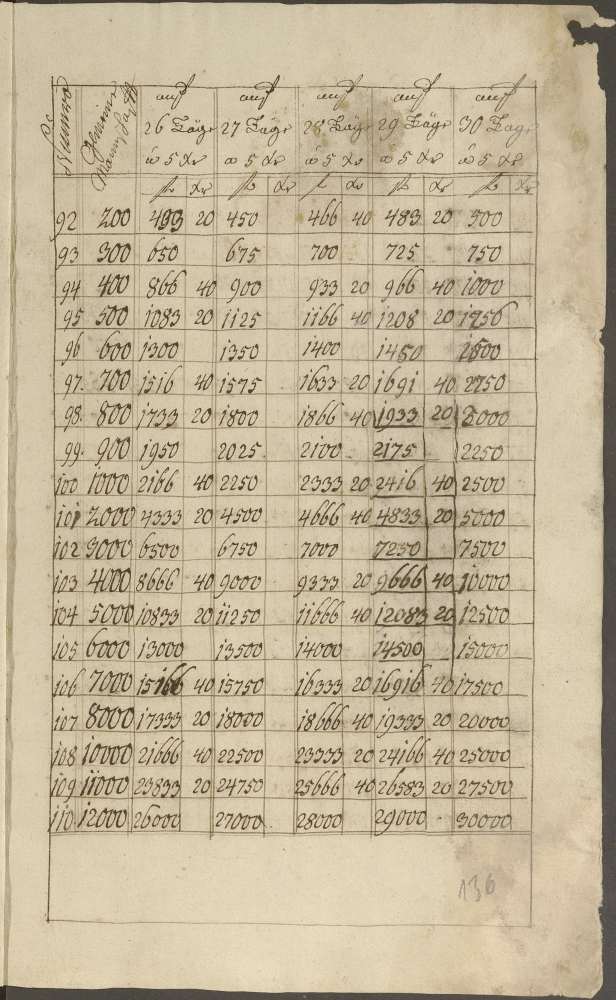 Numero Gemeine Mann, Tag auf auf auf auf auf
26 Täge 27 Täge 28 Täge 29 Täge 30 Tage
à 5 xr à 5 xr à 5 xr à 5 xr à 5 xr
f xr f xr f xr f xr f xr
92 200 433 20 450 466 40 483 20 500
93 300 650 675 700 725 750
94 400 866 40 900 933 20 966 40 1000
95 500 1083 20 1125 1166 40 1208 20 1250
96 600 1300 1350 1400 1450 1500
97. 700 1516 40 1575 1633 20 1691 40 2750
98. 800 1733 20 1800 1866 40 1933 20 2000
99. 900 1950 2025. 2100 2175 2250
100 1000 2166 40 2250 2333 20 2416 40 2500
101 2000 4333 20 4500 4666 40 4833 20 5000
102 3000 6500 6750 7000 7250 7500
103 4000 8666 40 9000 9333 20 9666 40 10000
104 5000 10833 20 11250 11666 40 12083 20 12500
105 6000 13000 13500 14000 14500 15000
106 7000 15166 40 15750 16333 20 16916 40 17500
107 8000 17333 20 18000 18666 40 19333 20 20000
108 10000 21666 40 22500 23333 20 24166 40 25000
109 11000 23833 20 24750 25666 40 26583 20 27500
110 12000 26000 27000 28000 29000 30000
136